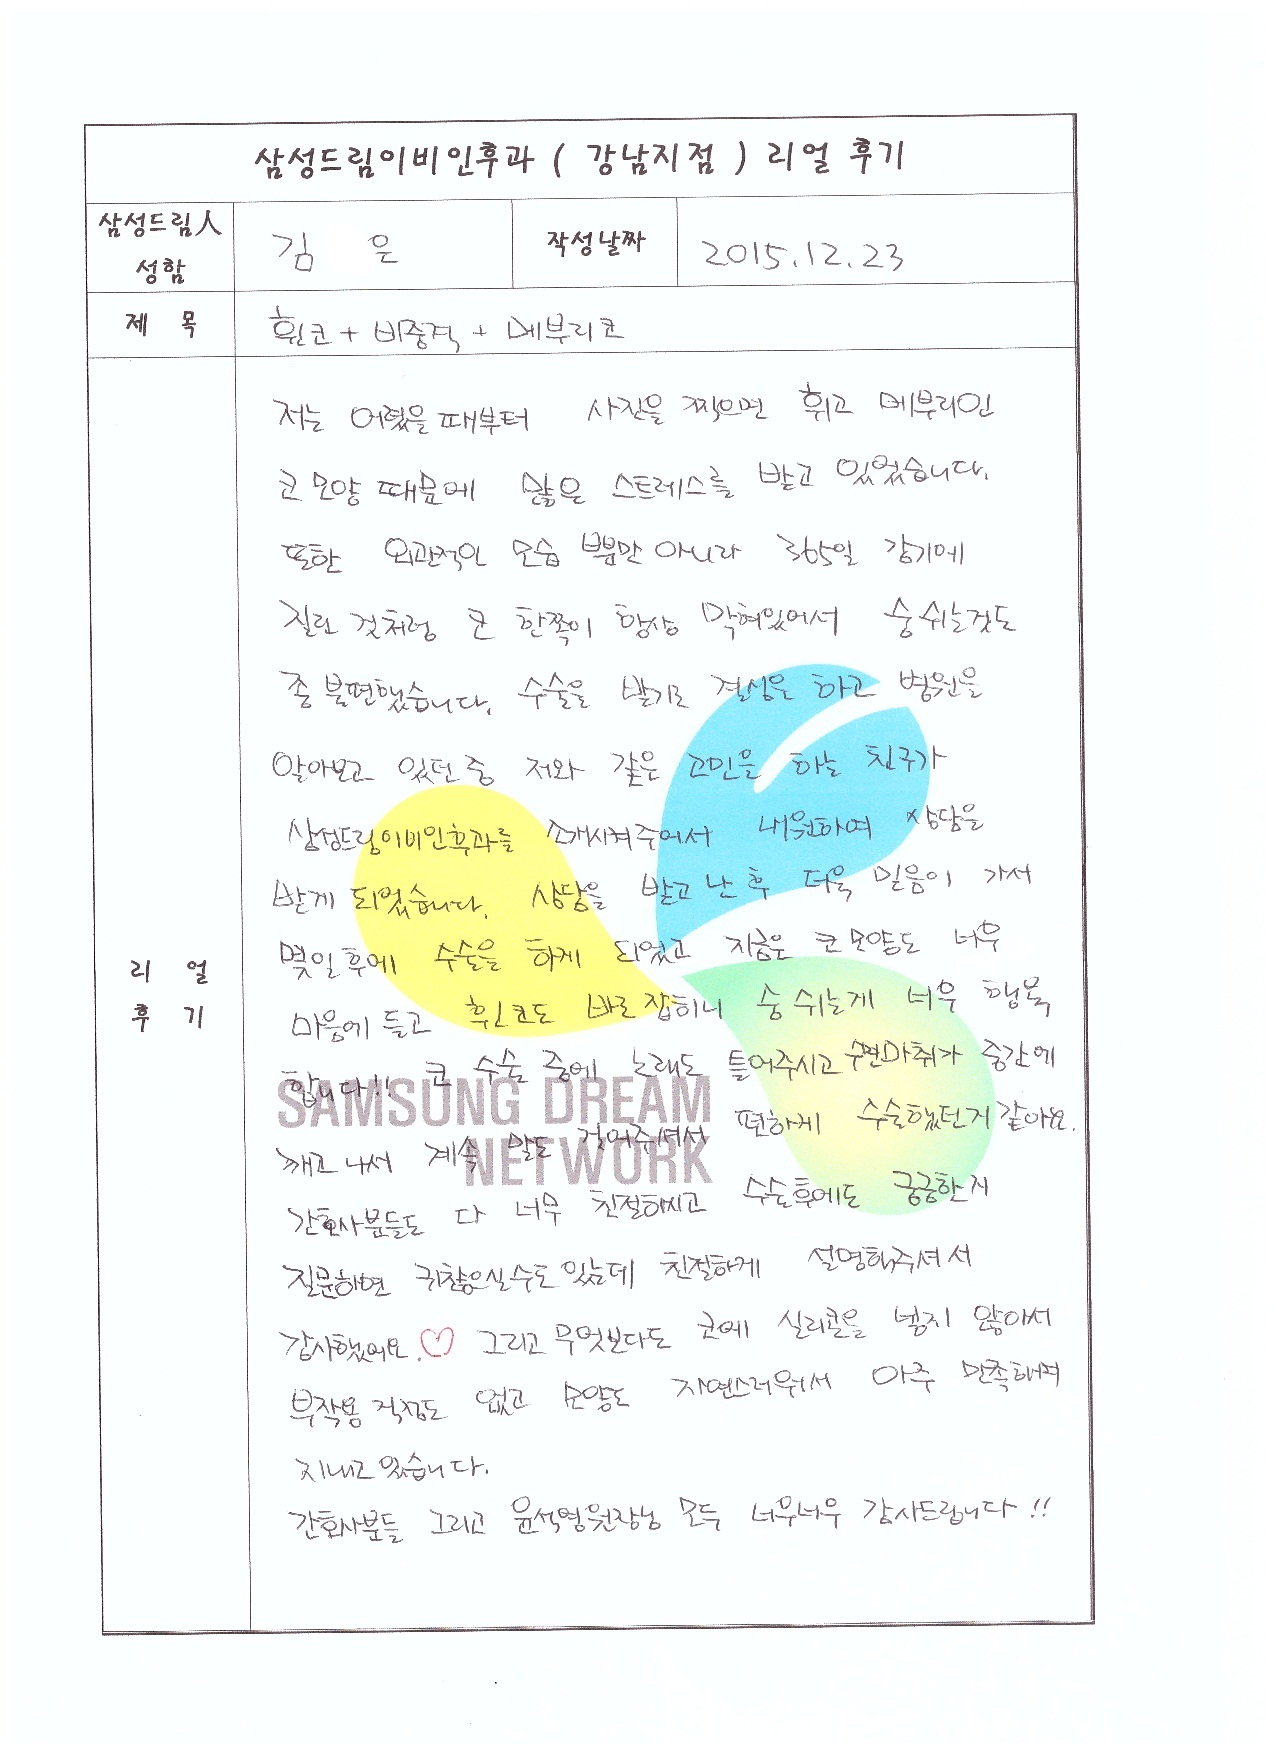 삼성드림이비인후과 ( 강남지점 ) 리얼 후기
삼성드림人 성함
김 은
작성날짜
2015.12.23
제 목
휜코 + 비중격 + 메부리코
리 얼 후 기
저는 어렸을때부터 사진을 찍으면 휘고 메부리인
코 모양 때문에 많은 스트레스를 받고 있었습니다.
또한 외관적인 모습 뿐만 아니라 365일 감기에
질린 것처럼 코 한쪽이 항상 막혀있어서 숨 쉬는것도
좀 불편했습니다. 수술을 받기로 결심을 하고 병원을
알아보고 있던 중 저와 같은 고민을 하는 친구가
삼성드림이비인후과를 소개시켜주어서 내원하여 상담을
받게 되었습니다. 상담을 받고 난 후 더욱 믿음이 가서
몇일 후에 수술을 하게 되었고 지금은 코 모양도 너무
마음에 들고 휜코도 바로 잡히니 숨 쉬는게 너무 행복
합니다!! 코 수술 중에 노래도 틀어주시고 수면마취가 중간에
깨고 나서 계속 말도 걸어주셔서 편하게 수술했던거 같아요.
간호사분들도 다 너무 친절하시고 수술후에도 궁금한거
질문하면 귀찮으실수도 있는데 친절하게 설명해주셔서
감사했어요.♡ 그리고 무엇보다도 코에 실리콘을 넣지 않아서
부작용 걱정도 없고 모양도 자연스러워서 아주 만족하며
지내고 있습니다.
간호사분들 그리고 윤석영원장님 모두 너무너무 감사드립니다!!
SAMSUNG DREAM
NETWORK